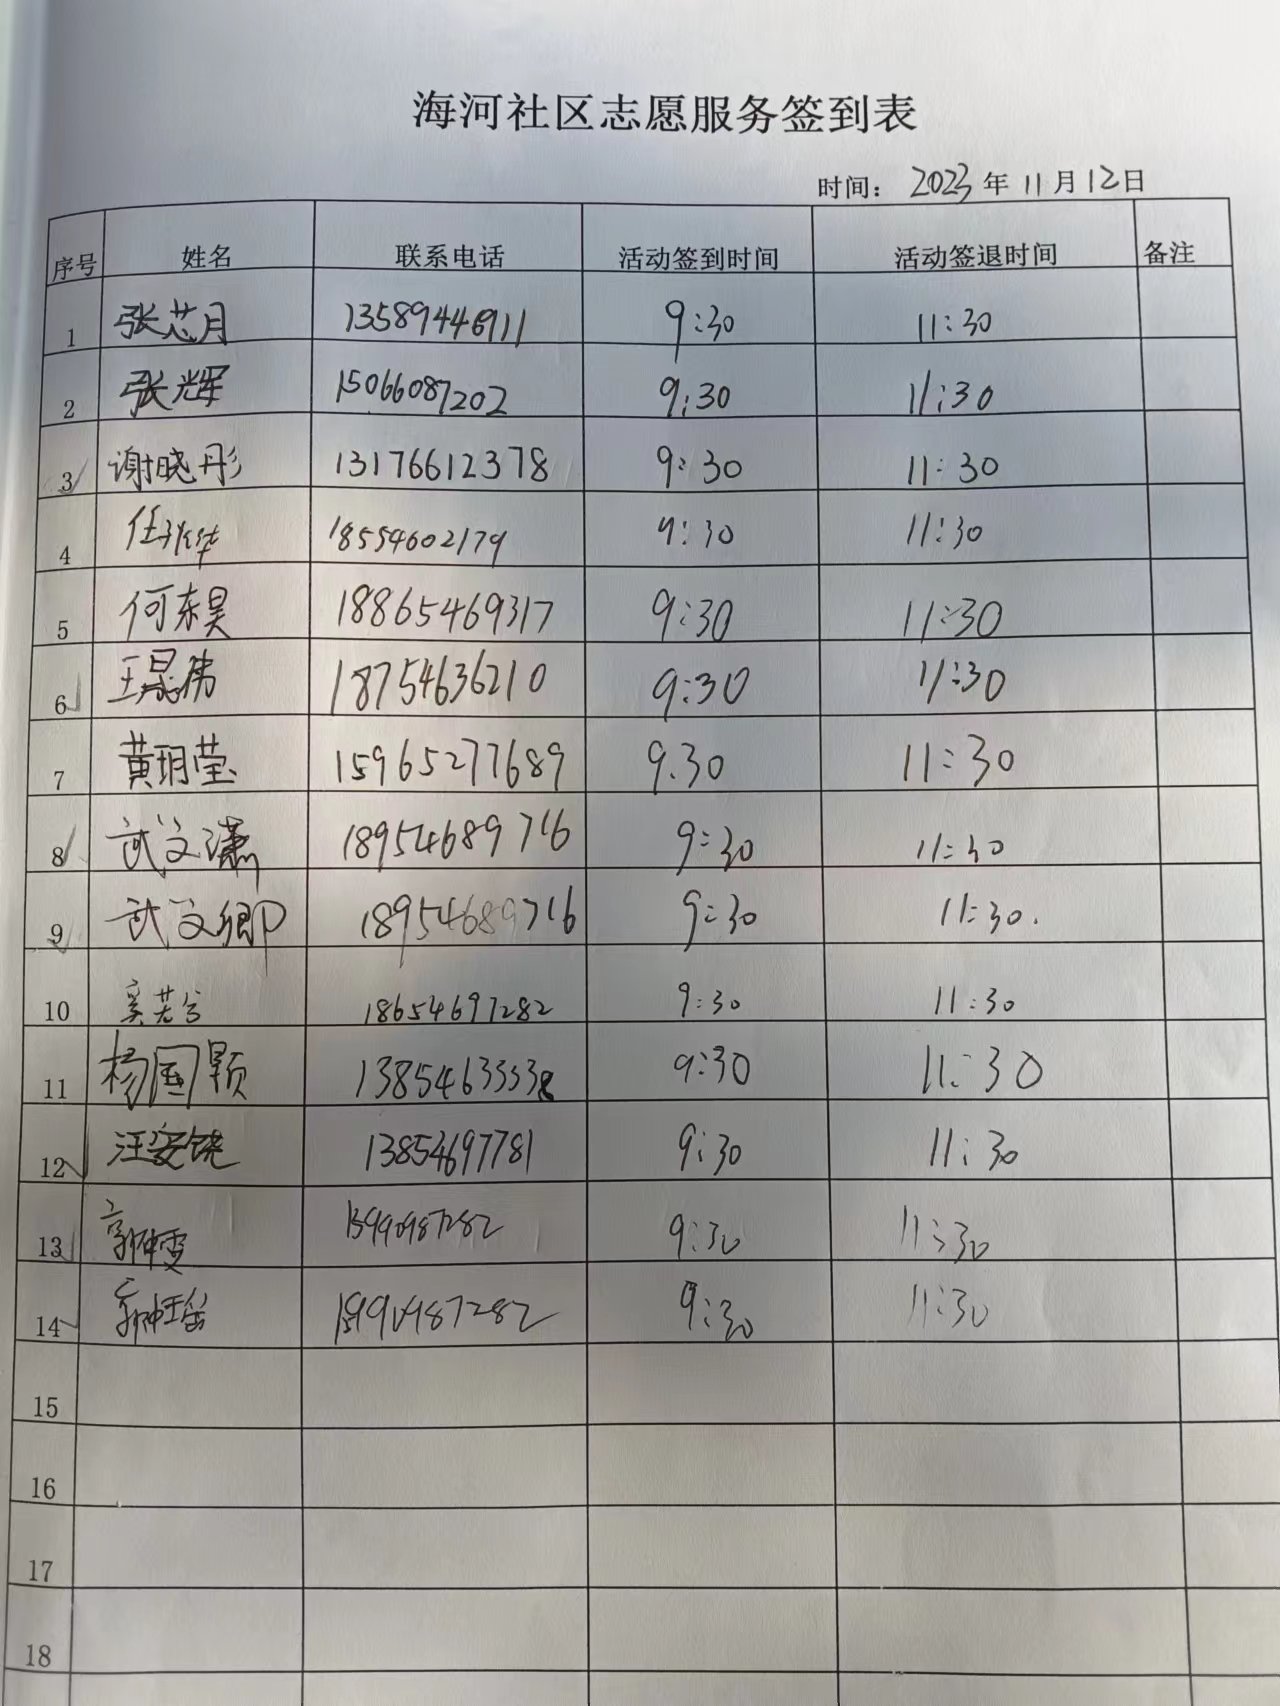 海河社区志愿服务签到表
时间： 2023 年 11 月 12 日
序号 姓名 联系电话 活动签到时间 活动签退时间 备注
1 张芯月 13589446911 9:30 11:30
2 张辉 15066087202 9:30 11:30
3 谢晓彤 13176612378 9:30 11:30
4 18554602179 9:30 11:30
5 何东昊 18865469317 9:30 11:30
6 王晟伟 18754636210 9:30 11:30
7 黄玥莹 15965277689 9.30 11:30
8 武文潇 18954689716 9:30 11:30
9 武文卿 18954689716 9:30 11:30.
10 奚若兮 18654697282 9:30 11:30
11 杨国颖 13854633538 9:30 11:30
12 13854697781 9:30 11:30
13 9:30 11:30
14 9:30 11:30
15
16
17
18